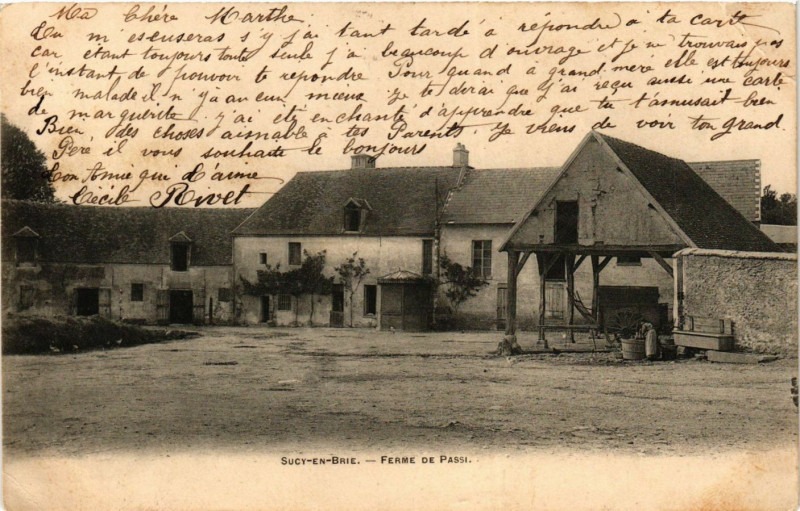 Ma Chère Marthe
Tu m'escuseras s'y j'ai tant tardé à répondre à ta carte
car etant toujours toute seule j'ai beaucoup d'ouvrage et je ne trouvais pas
l'instant de pouvoir te repondre Pour quand à grand mère elle est toujours
bien malade il n'y à aucun mieux Je te dirai que j'ai reçu aussi une carte
de marguerite j'ai etè enchanté d'apprendre que tu t'amusait bien
Bien des choses aimable à tes Parents Je viens de voir ton grand.
Père il vous souhaite le bonjours
ton Amie qui t'aime
Cécile Rivet
SUCY-EN-BRIE. — FERME DE PASSI.